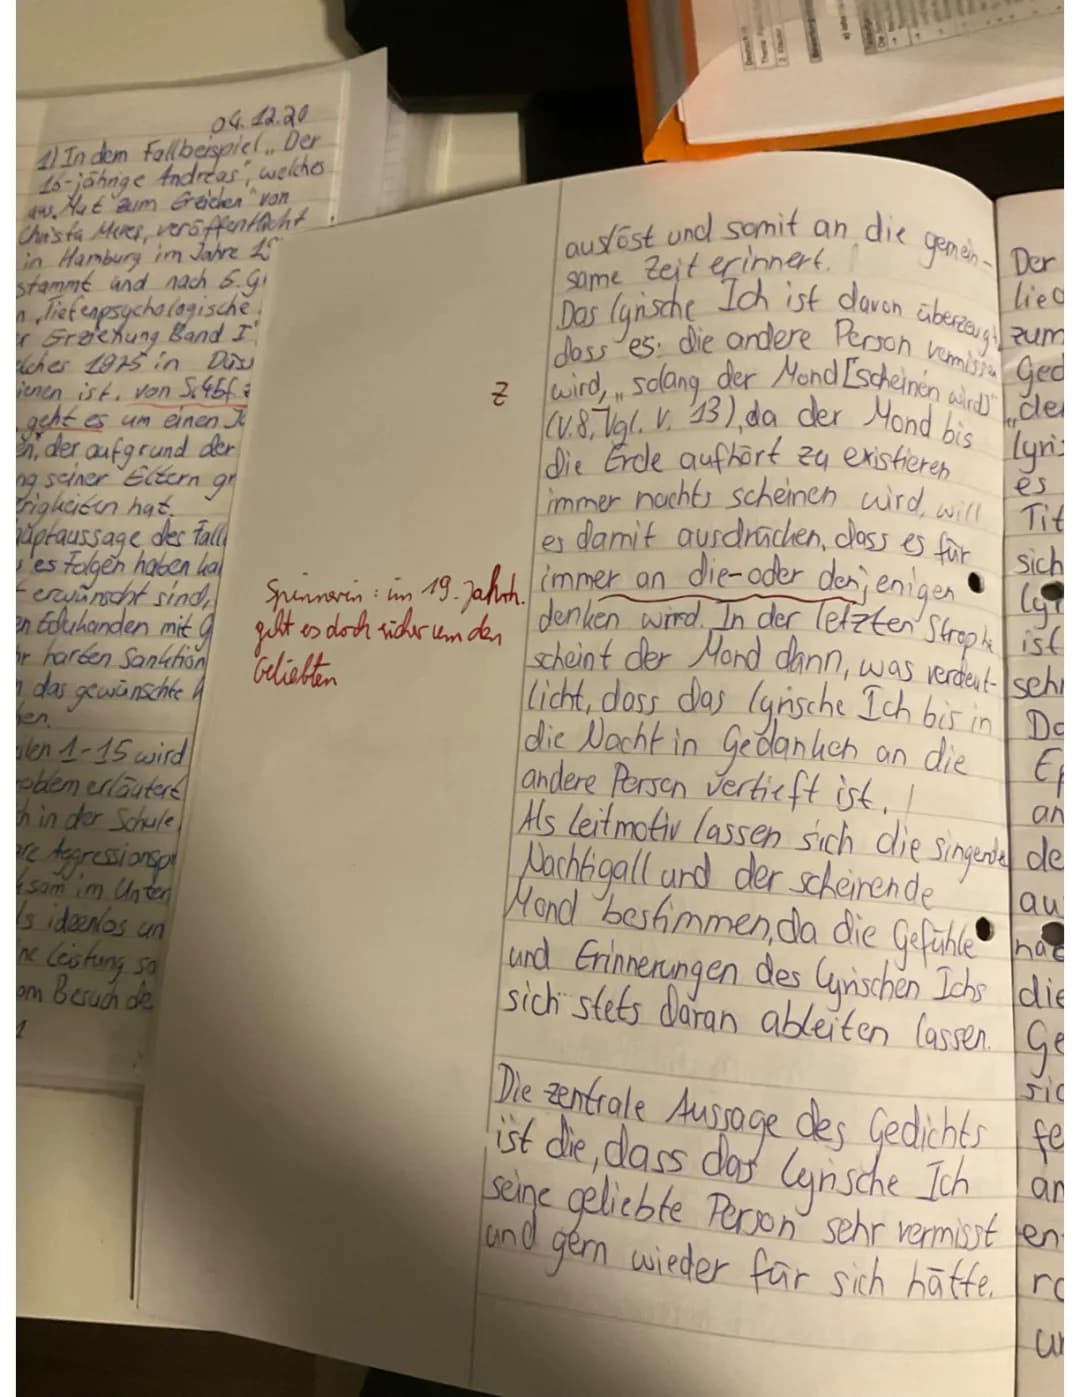 04.12.20
1) In dem Fallbeispiel „Der
16-jährige Andreas", welches
aus „Mut zum Erziehen" von
Christa Meves, veröffentlicht
in Hamburg im Jahre
stammt und nach S.
Tiefenpsychologische
Erziehung Band I"
1975 in
ist, von S. 45f
geht es um einen
der aufgrund der
seiner Eltern
hat.
des Fall
es Folgen haben
erwünscht sind,
Edukanden mit
harten
das gewünschte
1-15 wird
erläutert
in der Schule
im
ideenlos un
Leistung so
Besuch de
auslöst und somit an die gemein-
same Zeit erinnert.
Das lyrische Ich ist davon überzeugt,
dass es die andere Person vermissen
wird, „solang der Mond [scheinen wird]"
(V.8, Vgl. V. 13), da der Mond bis
die Erde aufhört zu existieren
immer nachts scheinen wird, will
es damit ausdrücken, dass es für
immer an die-oder denjenigen
denken wird. In der letzten Strophe
scheint der Mond dann, was verdeut-
licht, dass das lyrische Ich bis in
die Nacht in Gedanken an die
andere Person vertieft ist.
Als Leitmotiv lassen sich die singende
Nachtigall und der scheinende
Mond bestimmen, da die Gefühle
und Erinnerungen des lyrischen Ichs
sich stets daran ableiten lassen.
Die zentrale Aussage des Gedichts
ist die, dass das lyrische Ich
seine geliebte Person sehr vermisst
und gern wieder für sich hätte.
Z
Spinnerin: im 19. Jahrh.
geht es doch sicher um den
Geliebten
Der
lied
zum
Ged
„der
lyris
es
Tit
sich
ist
sehr
an
de
au
die
Ge